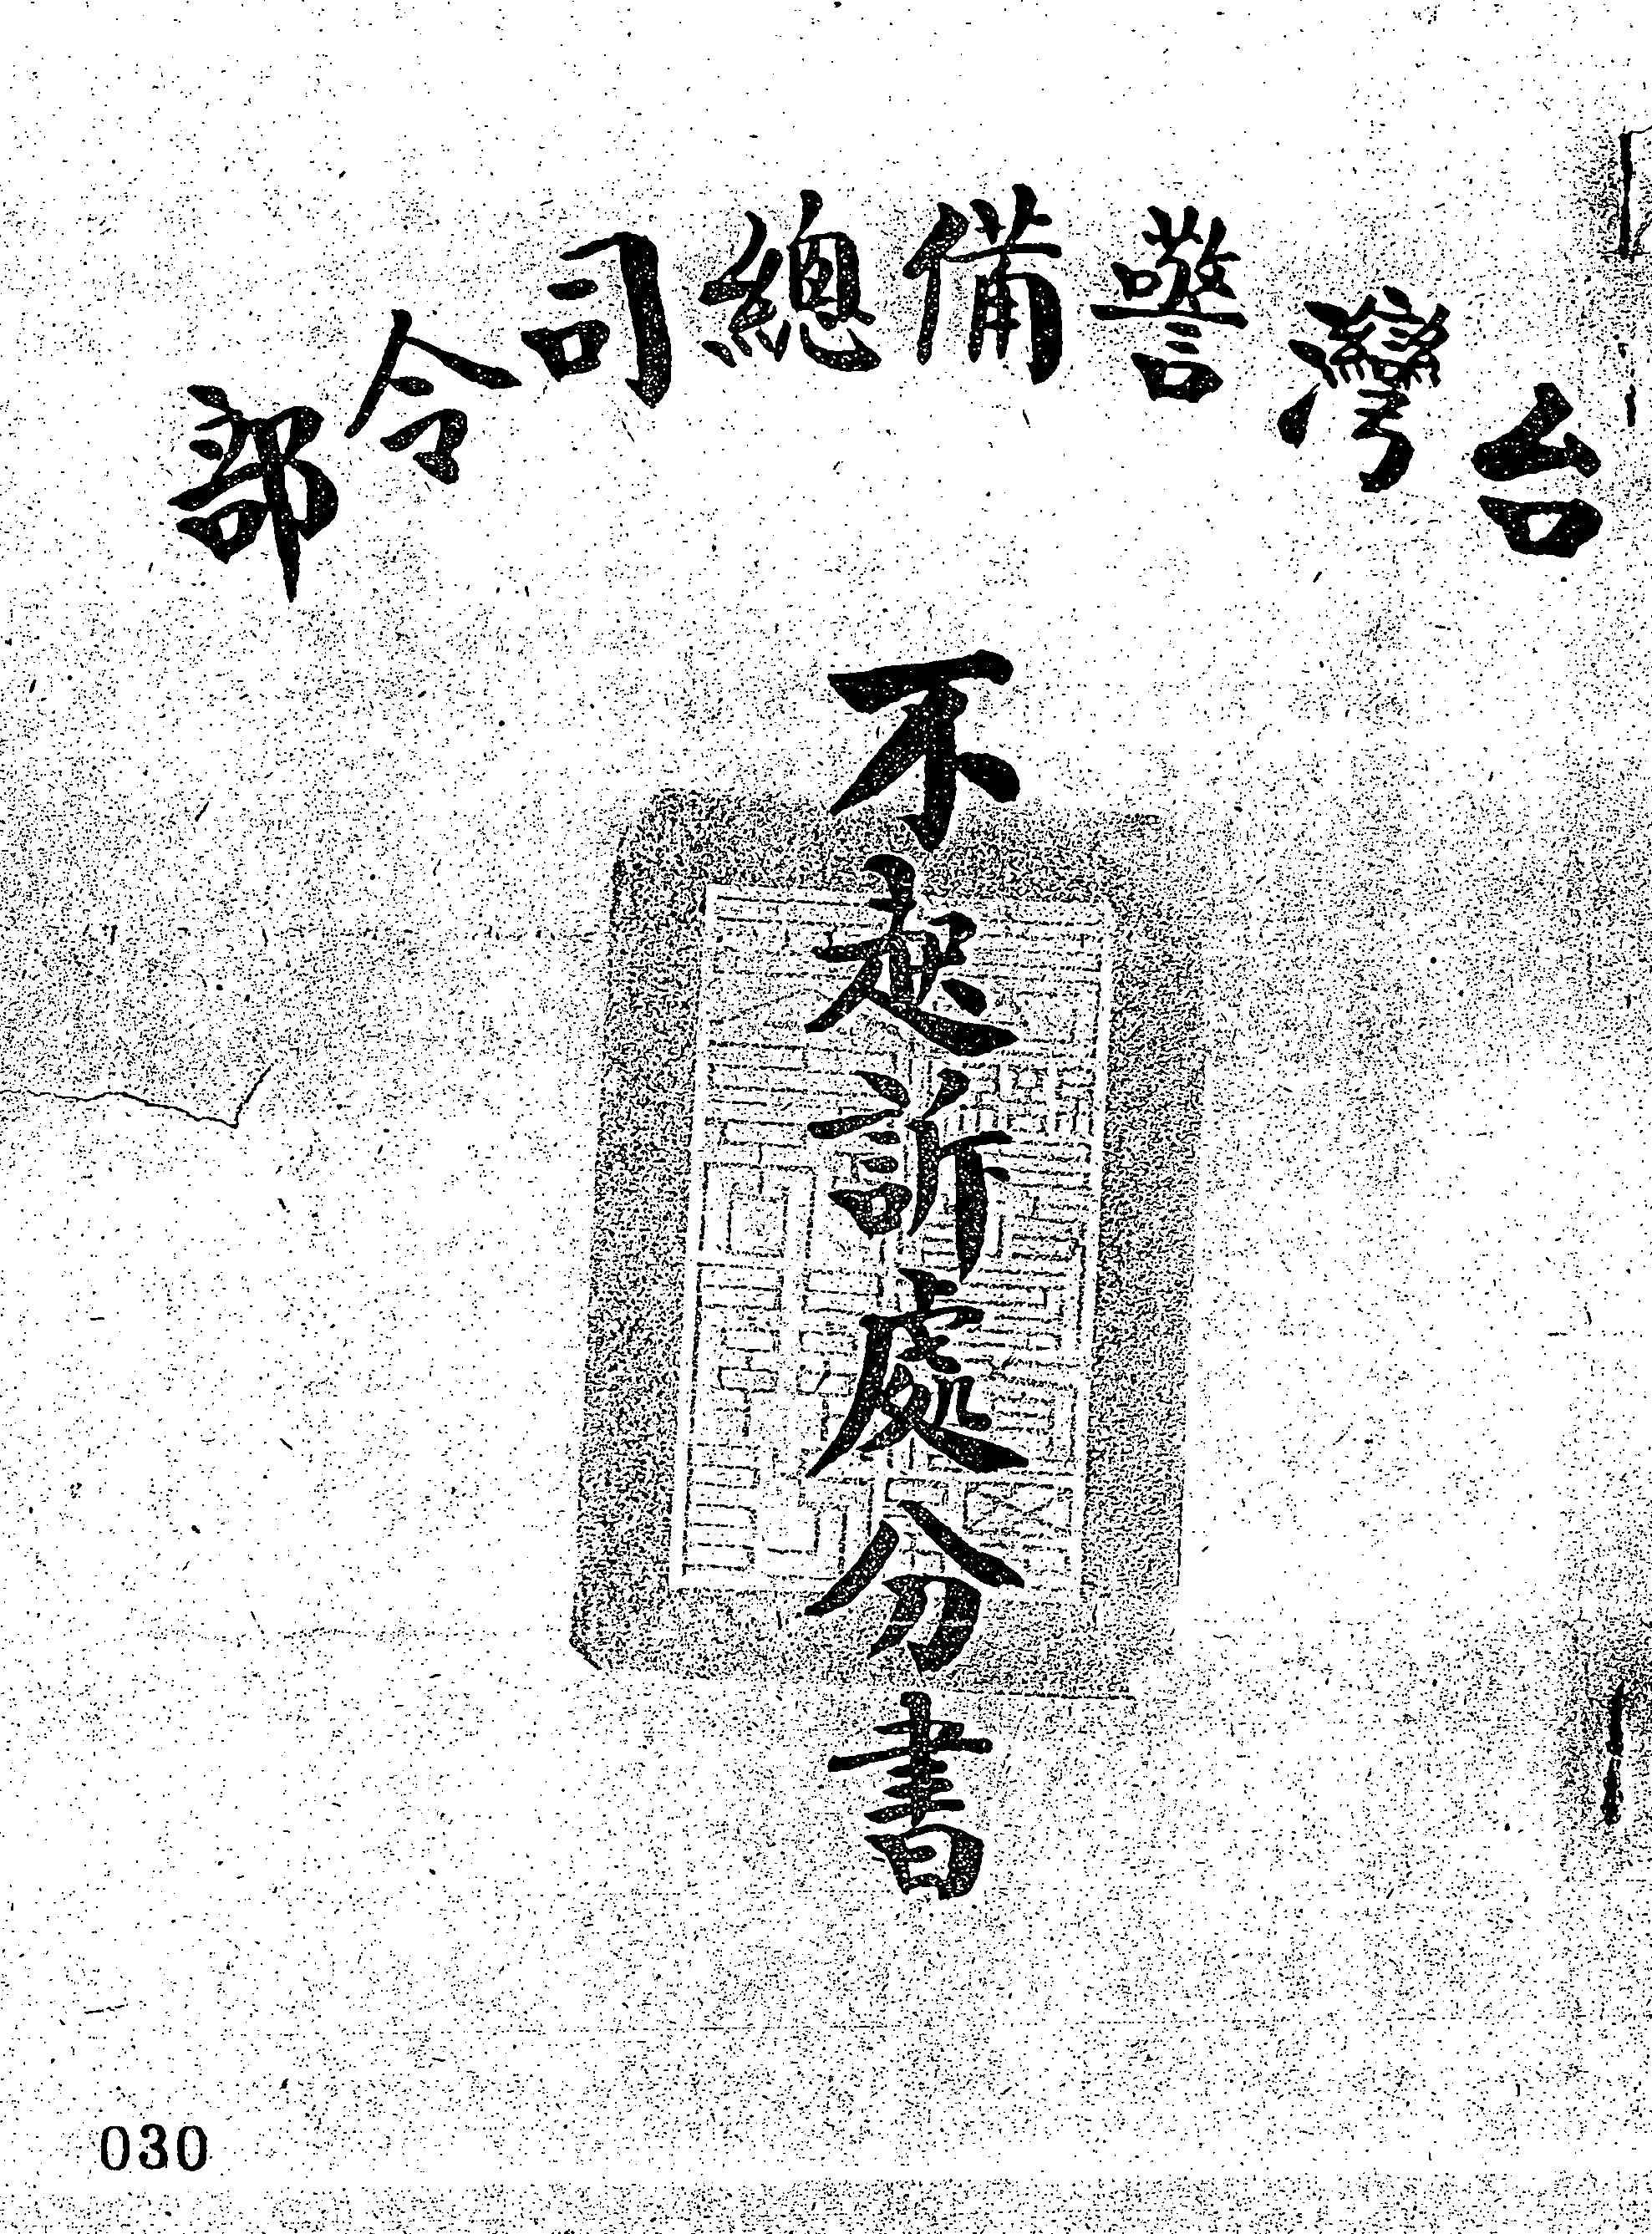 台灣警備總司令部
不起訴處分書
030